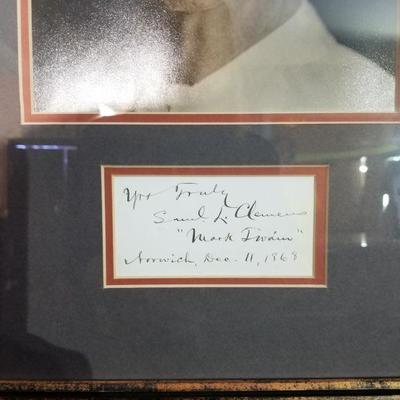 Yrs Truly
Saml. L. Clemens
"Mark Twain"
Norwich, Dec. 11, 1868